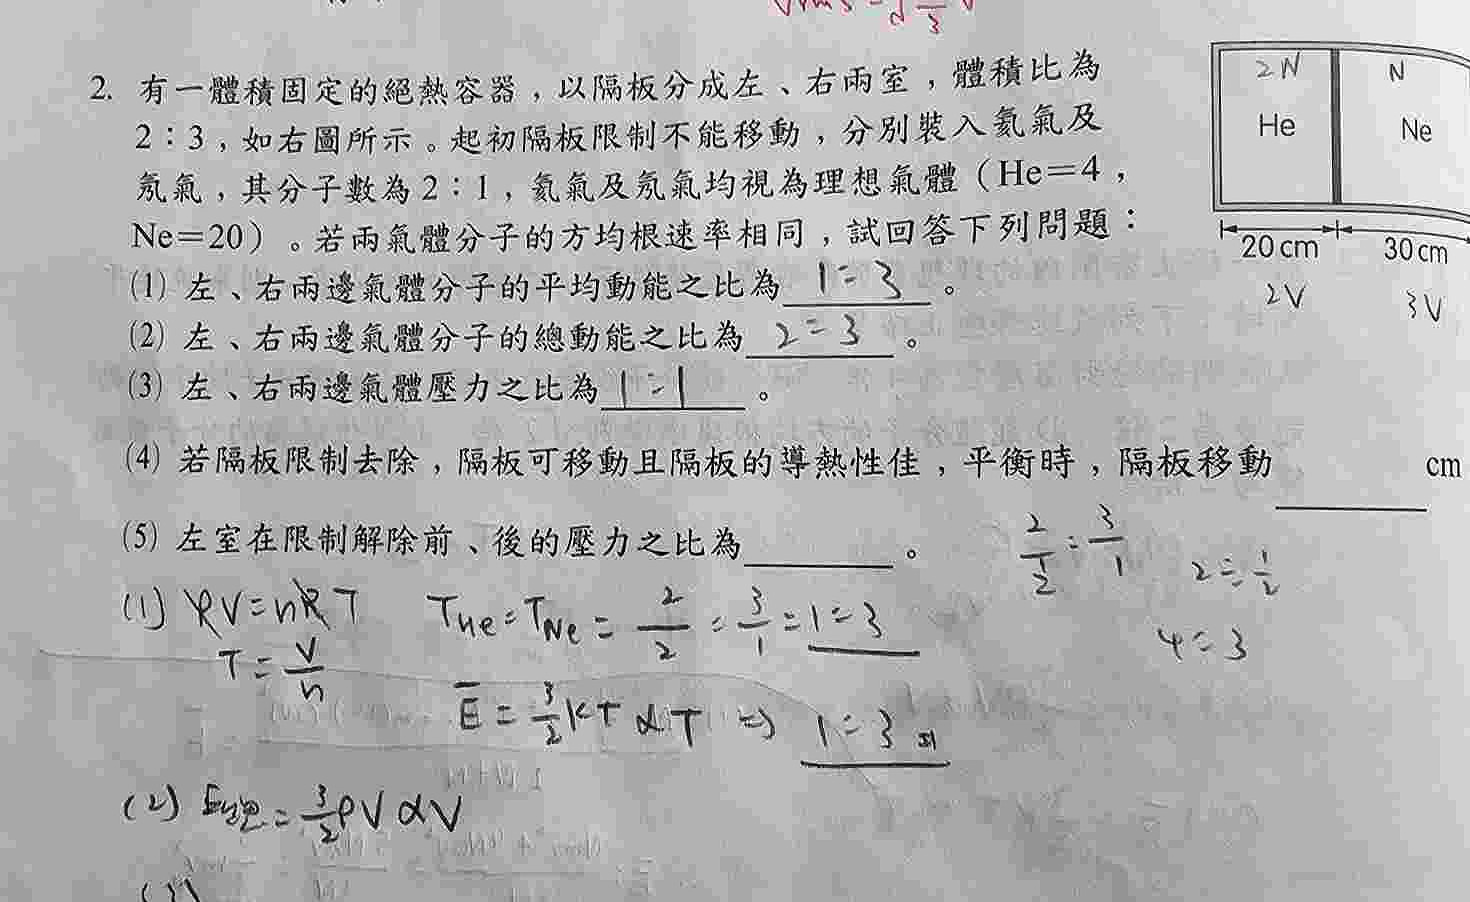 2. 有一體積固定的絕熱容器,以隔板分成左、右兩室,體積比為
2:3,如右圖所示。起初隔板限制不能移動,分別裝入氦氣及
氖氣,其分子數為2:1,氦氣及氖氣均視為理想氣體(He=4,
Ne=20)。若兩氣體分子的方均根速率相同,試回答下列問題:
2N N
He Ne
20 cm 30 cm
2V 3V
(1) 左、右兩邊氣體分子的平均動能之比為 1:3 。
(2) 左、右兩邊氣體分子的總動能之比為 2:3 。
(3) 左、右兩邊氣體壓力之比為 1:1 。
(4) 若隔板限制去除,隔板可移動且隔板的導熱性佳,平衡時,隔板移動 cm
(5) 左室在限制解除前、後的壓力之比為 。
2/2 : 3/1
2 : 1/2
4:3
(1) PV=nRT T_He : T_Ne = 2/2 : 3/1 = 1:3
T = V/n
E = 3/2 kT ∝ T ⇒ 1:3
(2) E = 3/2 PV ∝ V
(3)